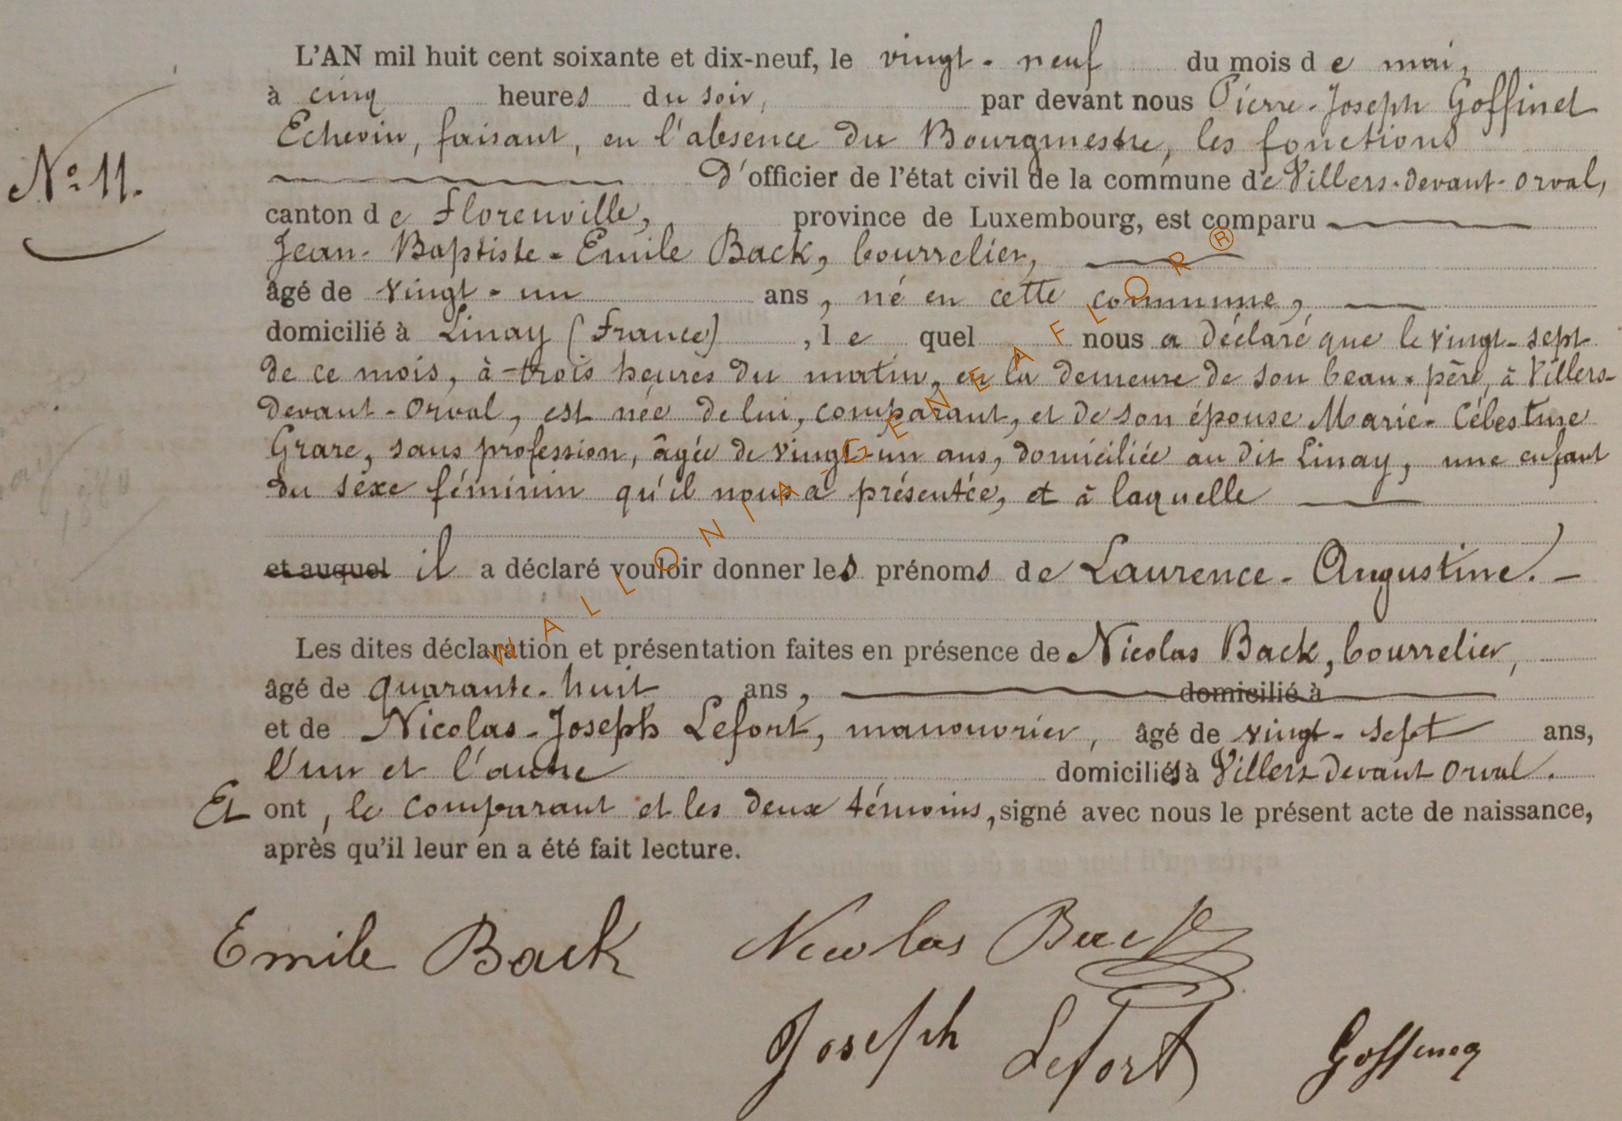 L'AN mil huit cent soixante et dix-neuf, le vingt-neuf du mois de mai,
à cinq heures du soir, par devant nous Pierre-Joseph Goffinet
Echevin, faisant, en l'absence du Bourgmestre, les fonctions
N° 11.
d'officier de l'état civil de la commune de Villers-devant-Orval,
canton de Florenville, province de Luxembourg, est comparu
Jean-Baptiste-Emile Back, bourrelier,
âgé de vingt-un ans, né en cette commune,
domicilié à Linay (France), lequel nous a déclaré que le vingt-sept
de ce mois, à trois heures du matin, en la demeure de son beau-père, à Villers-
devant-Orval, est née de lui, comparant, et de son épouse Marie-Célestine
Grare, sans profession, âgée de vingt-un ans, domiciliée au dit Linay, une enfant
du sexe féminin qu'il nous a présentée, et à laquelle
et auquel il a déclaré vouloir donner les prénoms de Laurence-Augustine.
Les dites déclaration et présentation faites en présence de Nicolas Back, bourrelier,
âgé de quarante-huit ans, domicilié à
et de Nicolas-Joseph Lefort, manouvrier, âgé de vingt-sept ans,
l'un et l'autre domiciliés à Villers devant Orval.
Et ont, le comparant et les deux témoins, signé avec nous le présent acte de naissance,
après qu'il leur en a été fait lecture.
Emile Back Nicolas Back
Joseph Lefort
WALLONIA GENEAFLOR®